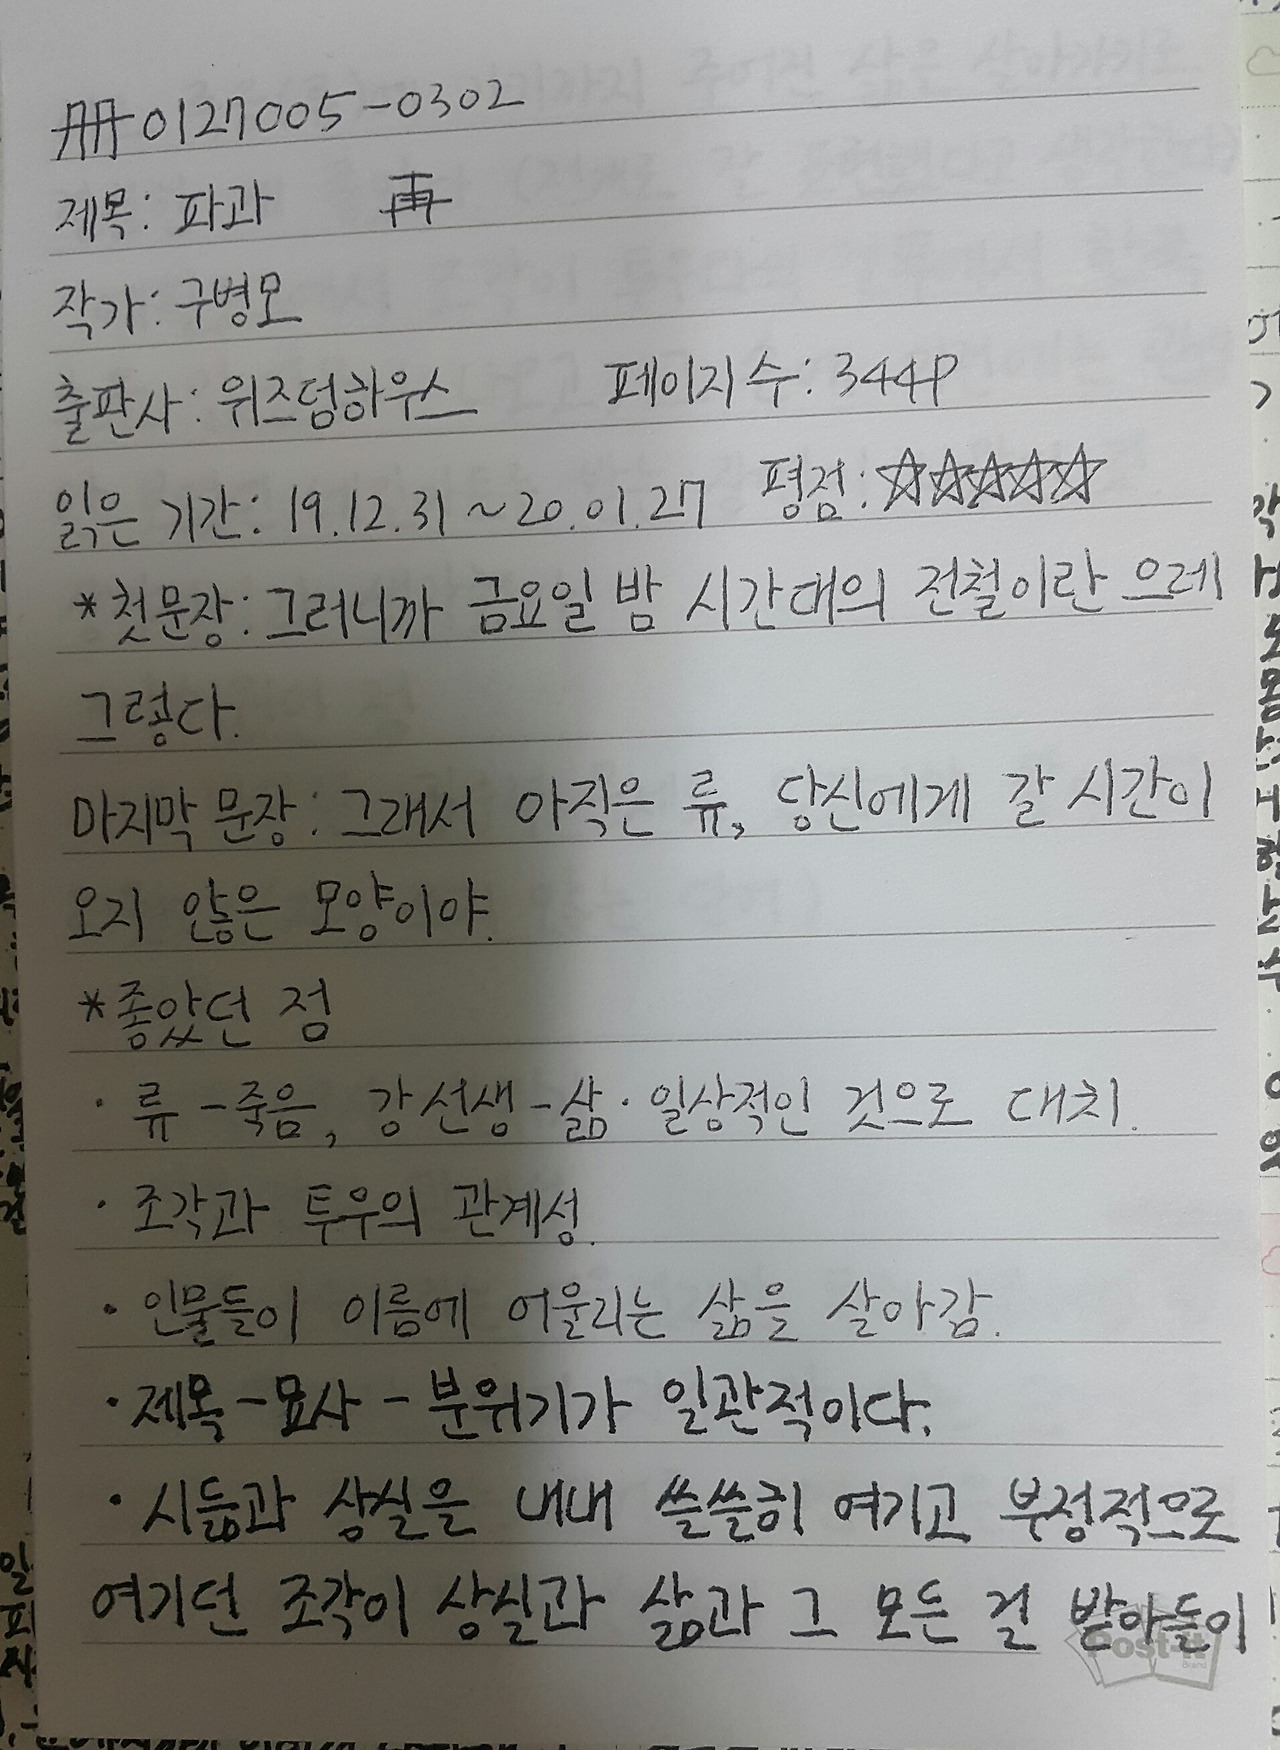 冊0127005-0302
제목: 파과 再
작가: 구병모
출판사: 위즈덤하우스 페이지 수: 344P
읽은 기간: 19.12.31 ~ 20.01.27 평점: ☆☆☆☆☆
*첫문장: 그러니까 금요일 밤 시간대의 전철이란 으레
그렇다.
마지막 문장: 그래서 아직은 류, 당신에게 갈 시간이
오지 않은 모양이야.
*좋았던 점
· 류 - 죽음, 강 선생 - 삶·일상적인 것으로 대치.
· 조각과 투우의 관계성.
· 인물들이 이름에 어울리는 삶을 살아감.
· 제목 - 묘사 - 분위기가 일관적이다.
· 시듦과 상실을 내내 쓸쓸히 여기고 부정적으로
여기던 조각이 상실과 삶과 그 모든 걸 받아들이
Post-it
Brand